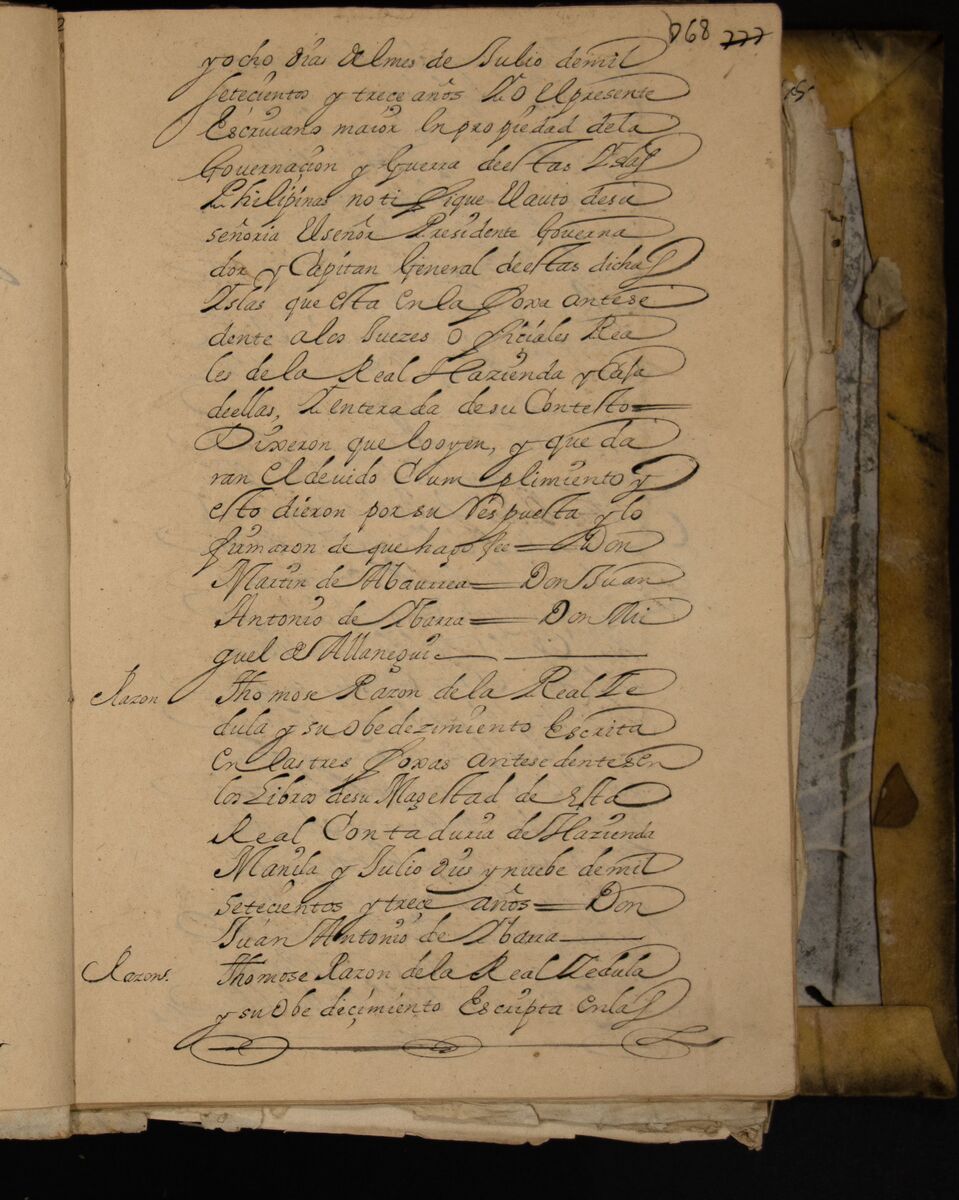 868 777
y ocho dias del mes de Julio de mil
setecientos y trece años Yo El presente
Escriuano maior En propiedad de la
Gouernacion y Guerra de estas Yslas
Philipinas notifique El auto de su
señoria El señor Presidente Gouerna
dor y Capitan General de estas dichas
Yslas que esta en la foxa antese
dente a los Juezes oficiales Rea
les de la Real Hazienda y Caxa
de ellas, Y enterada de su Contesto=
Dixeron que lo oyen, y que da
ran El deuido Cumplimiento y
esto dieron por su Respuesta y lo
firmaron de que hago fee = Don
Martin de Abaurrea = Don Juan
Antonio de Ybarra = Don Mi
guel de Allanegui
Razon Thomose Razon de la Real Ze
dula y su obedezimiento Escrita
en las tres foxas antesedentes En
los Libros de su Magestad de esta
Real Contaduria de Hazienda
Manila y Julio dies y nuebe de mil
setecientos y trece años = Don
Juan Antonio de Ybarra
Razon. Thomose Razon de la Real Zedula
y su obedicimiento Escripta en las